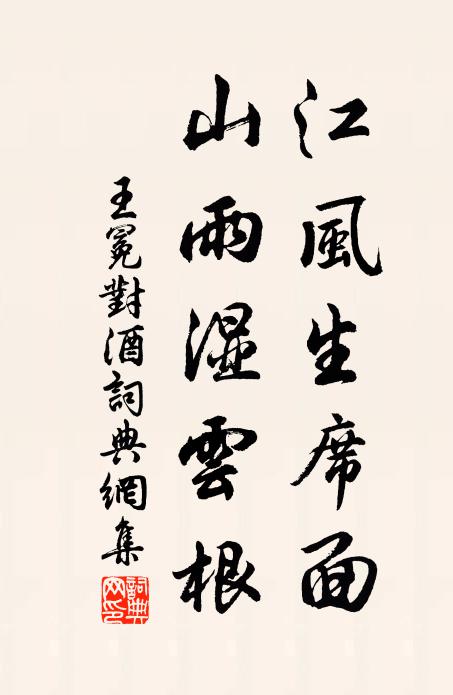 江風生席面
山雨湿雲根
王冕對酒詞典網集
詞典
网印